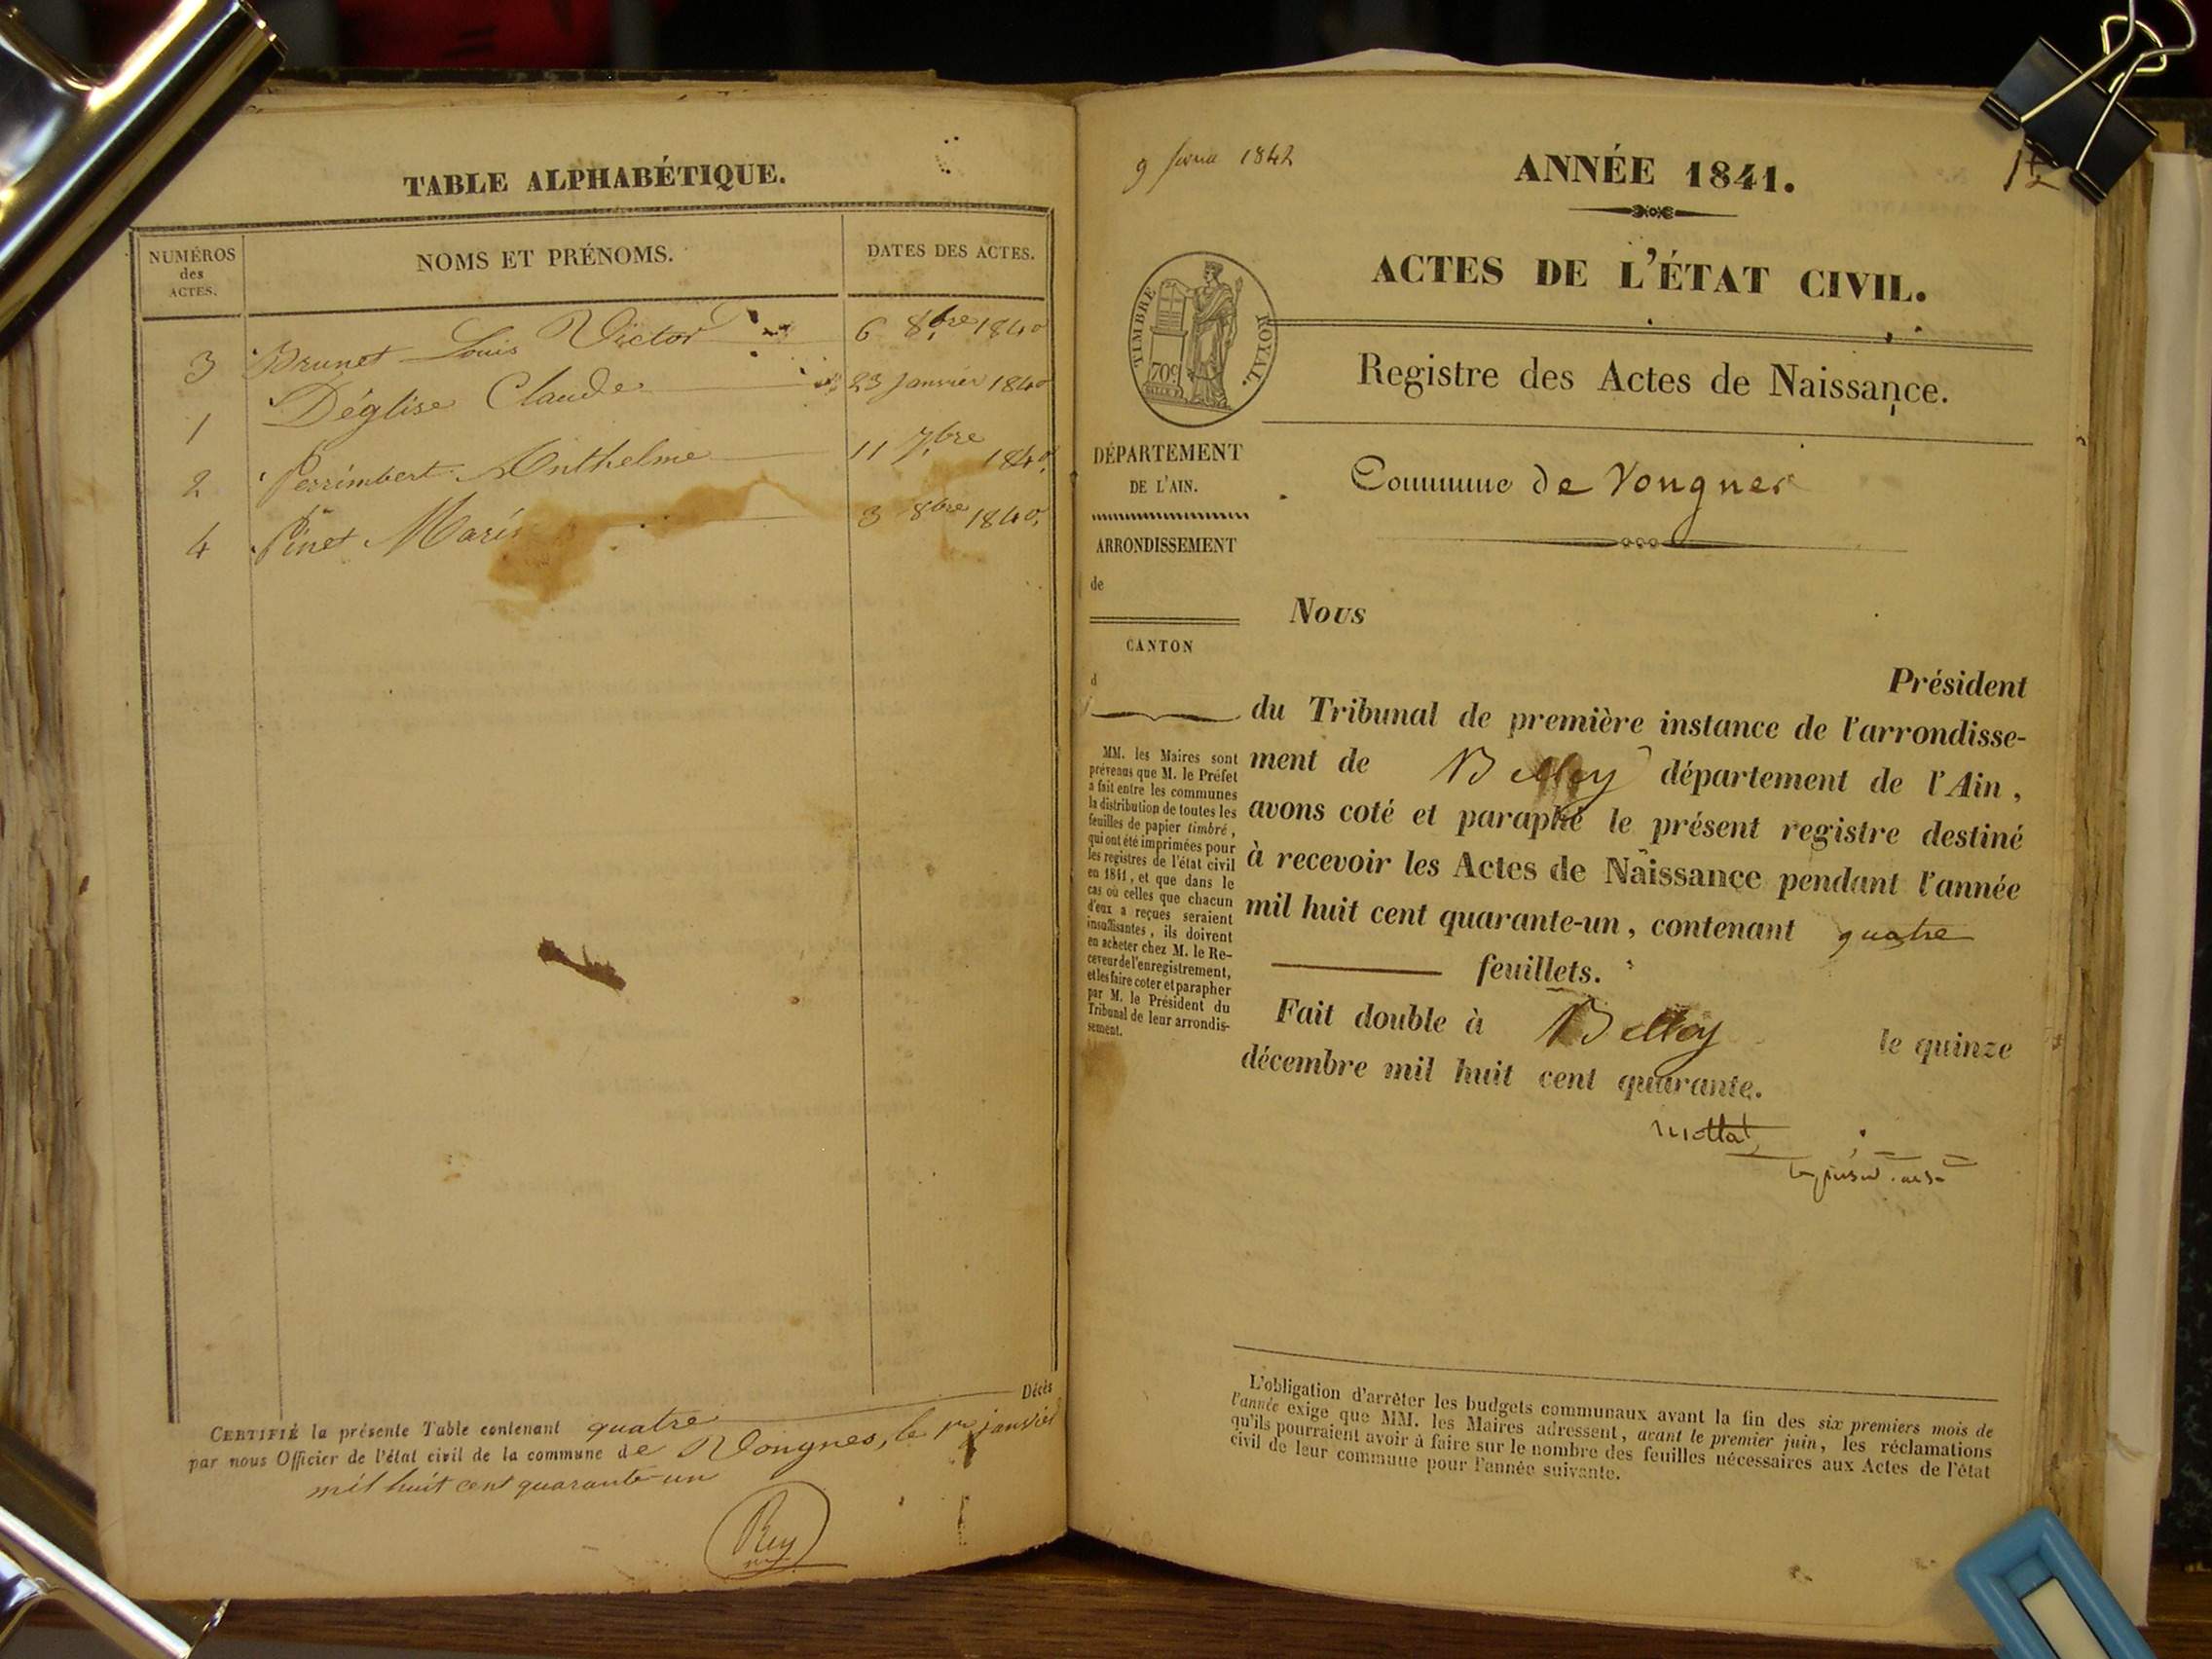 TABLE ALPHABÉTIQUE.
NUMÉROS
des
ACTES.
NOMS ET PRÉNOMS.
DATES DES ACTES.
3 Brunet Louis Victor 6 8bre 1840
1 Déglise Claude 23 janvier 1840
2 Perrimbert Anthelme 11 7bre 1840
4 Pinet Marie 3 8bre 1840.
Décès
CERTIFIÉ la présente Table contenant quatre
par nous Officier de l'état civil de la commune de Vongnes, le 1er janvier
mil huit cent quarante-un
Rey
9 1842
ANNÉE 1841.
ACTES DE L'ÉTAT CIVIL.
TIMBRE ROYAL.
70c
Registre des Actes de Naissance.
DÉPARTEMENT
DE L'AIN.
ARRONDISSEMENT
de
CANTON
d
Commune de Vongnes
MM. les Maires sont
prévenus que M. le Préfet
a fait entre les communes
la distribution de toutes les
feuilles de papier timbré,
qui ont été imprimées pour
les registres de l'état civil
en 1841, et que dans le
cas où celles que chacun
d'eux a reçues seraient
insuffisantes, ils doivent
en acheter chez M. le Re-
ceveur de l'enregistrement,
et les faire coter et parapher
par M. le Président du
Tribunal de leur arrondis-
sement.
Nous
Président
du Tribunal de première instance de l'arrondisse-
ment de Belley département de l'Ain,
avons coté et paraphé le présent registre destiné
à recevoir les Actes de Naissance pendant l'année
mil huit cent quarante-un, contenant quatre
feuillets.
Fait double à Belley le quinze
décembre mil huit cent quarante.
L'obligation d'arrêter les budgets communaux avant la fin des six premiers mois de
l'année exige que MM. les Maires adressent, avant le premier juin, les réclamations
qu'ils pourraient avoir à faire sur le nombre des feuilles nécessaires aux Actes de l'état
civil de leur commune pour l'année suivante.